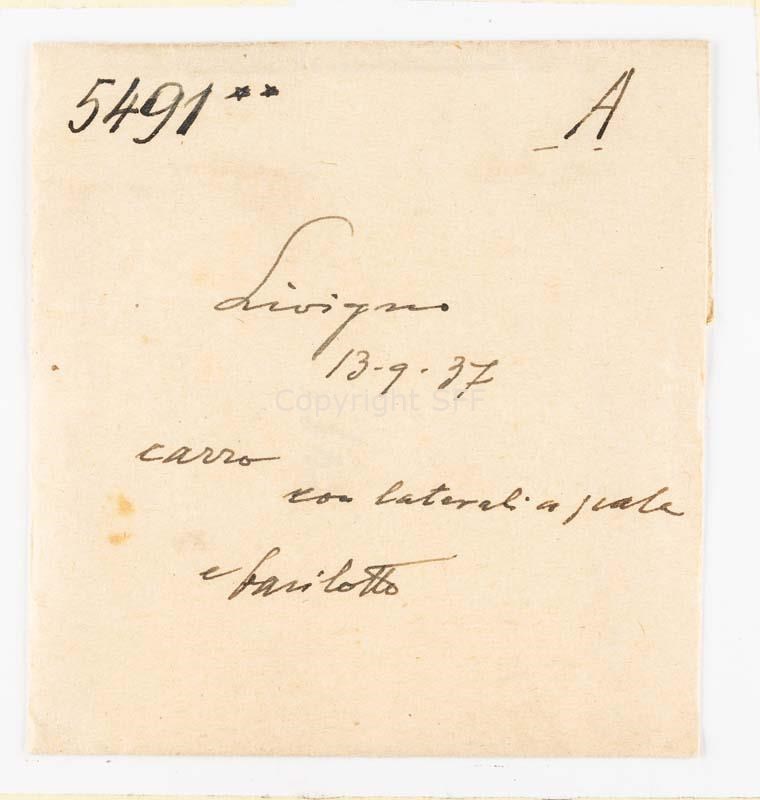 5491** A
Livigno
13-9-37
Copyright SFF
carro
con laterali a scala
e barilotto